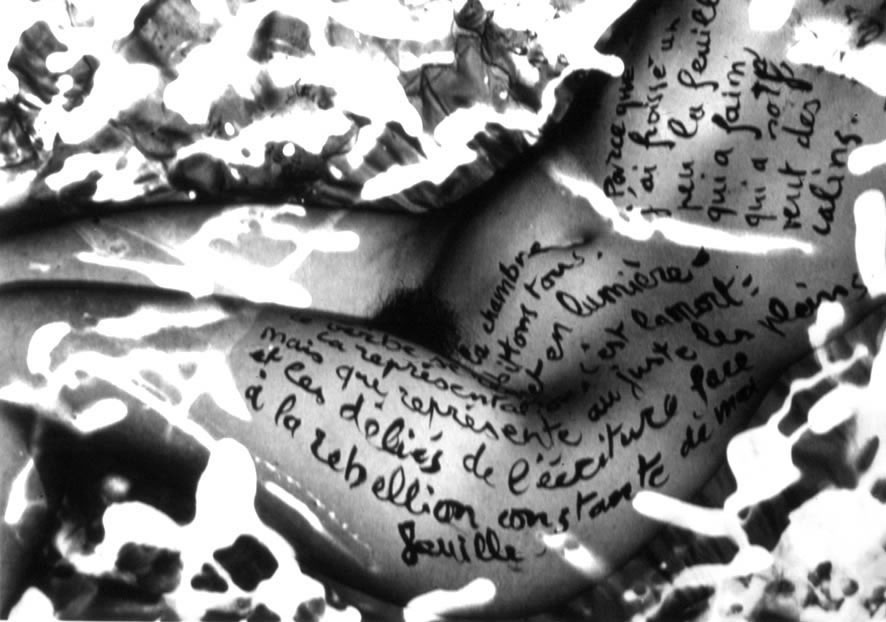 Parce que
j'ai froissé un
peu la feuille
qui a faim,
qui a soif
veut des
calins.
la chambre
tous.
et en lumière
verbe
la représentation, c'est la mort:
mais que représente au juste les pleins
et les déliés de l'écriture face
à la rebellion constante de ma
feuille